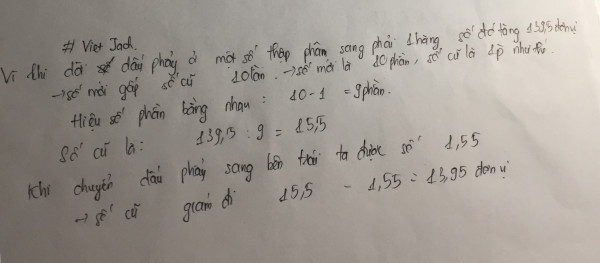 # Viet Jach.
Vì khi dời dấu phẩy ở một số thập phân sang phải 1 hàng số đó tăng 139,5 đơn vị
→ số mới gấp số cũ 10 lần. → số mới là 10 phần, số cũ là 1p như thế.
Hiệu số phần bằng nhau: 10 - 1 = 9 phần.
Số cũ là: 139,5 : 9 = 15,5
Khi chuyển dấu phẩy sang bên trái ta được số 1,55
→ số cũ giảm đi 15,5 - 1,55 = 13,95 đơn vị